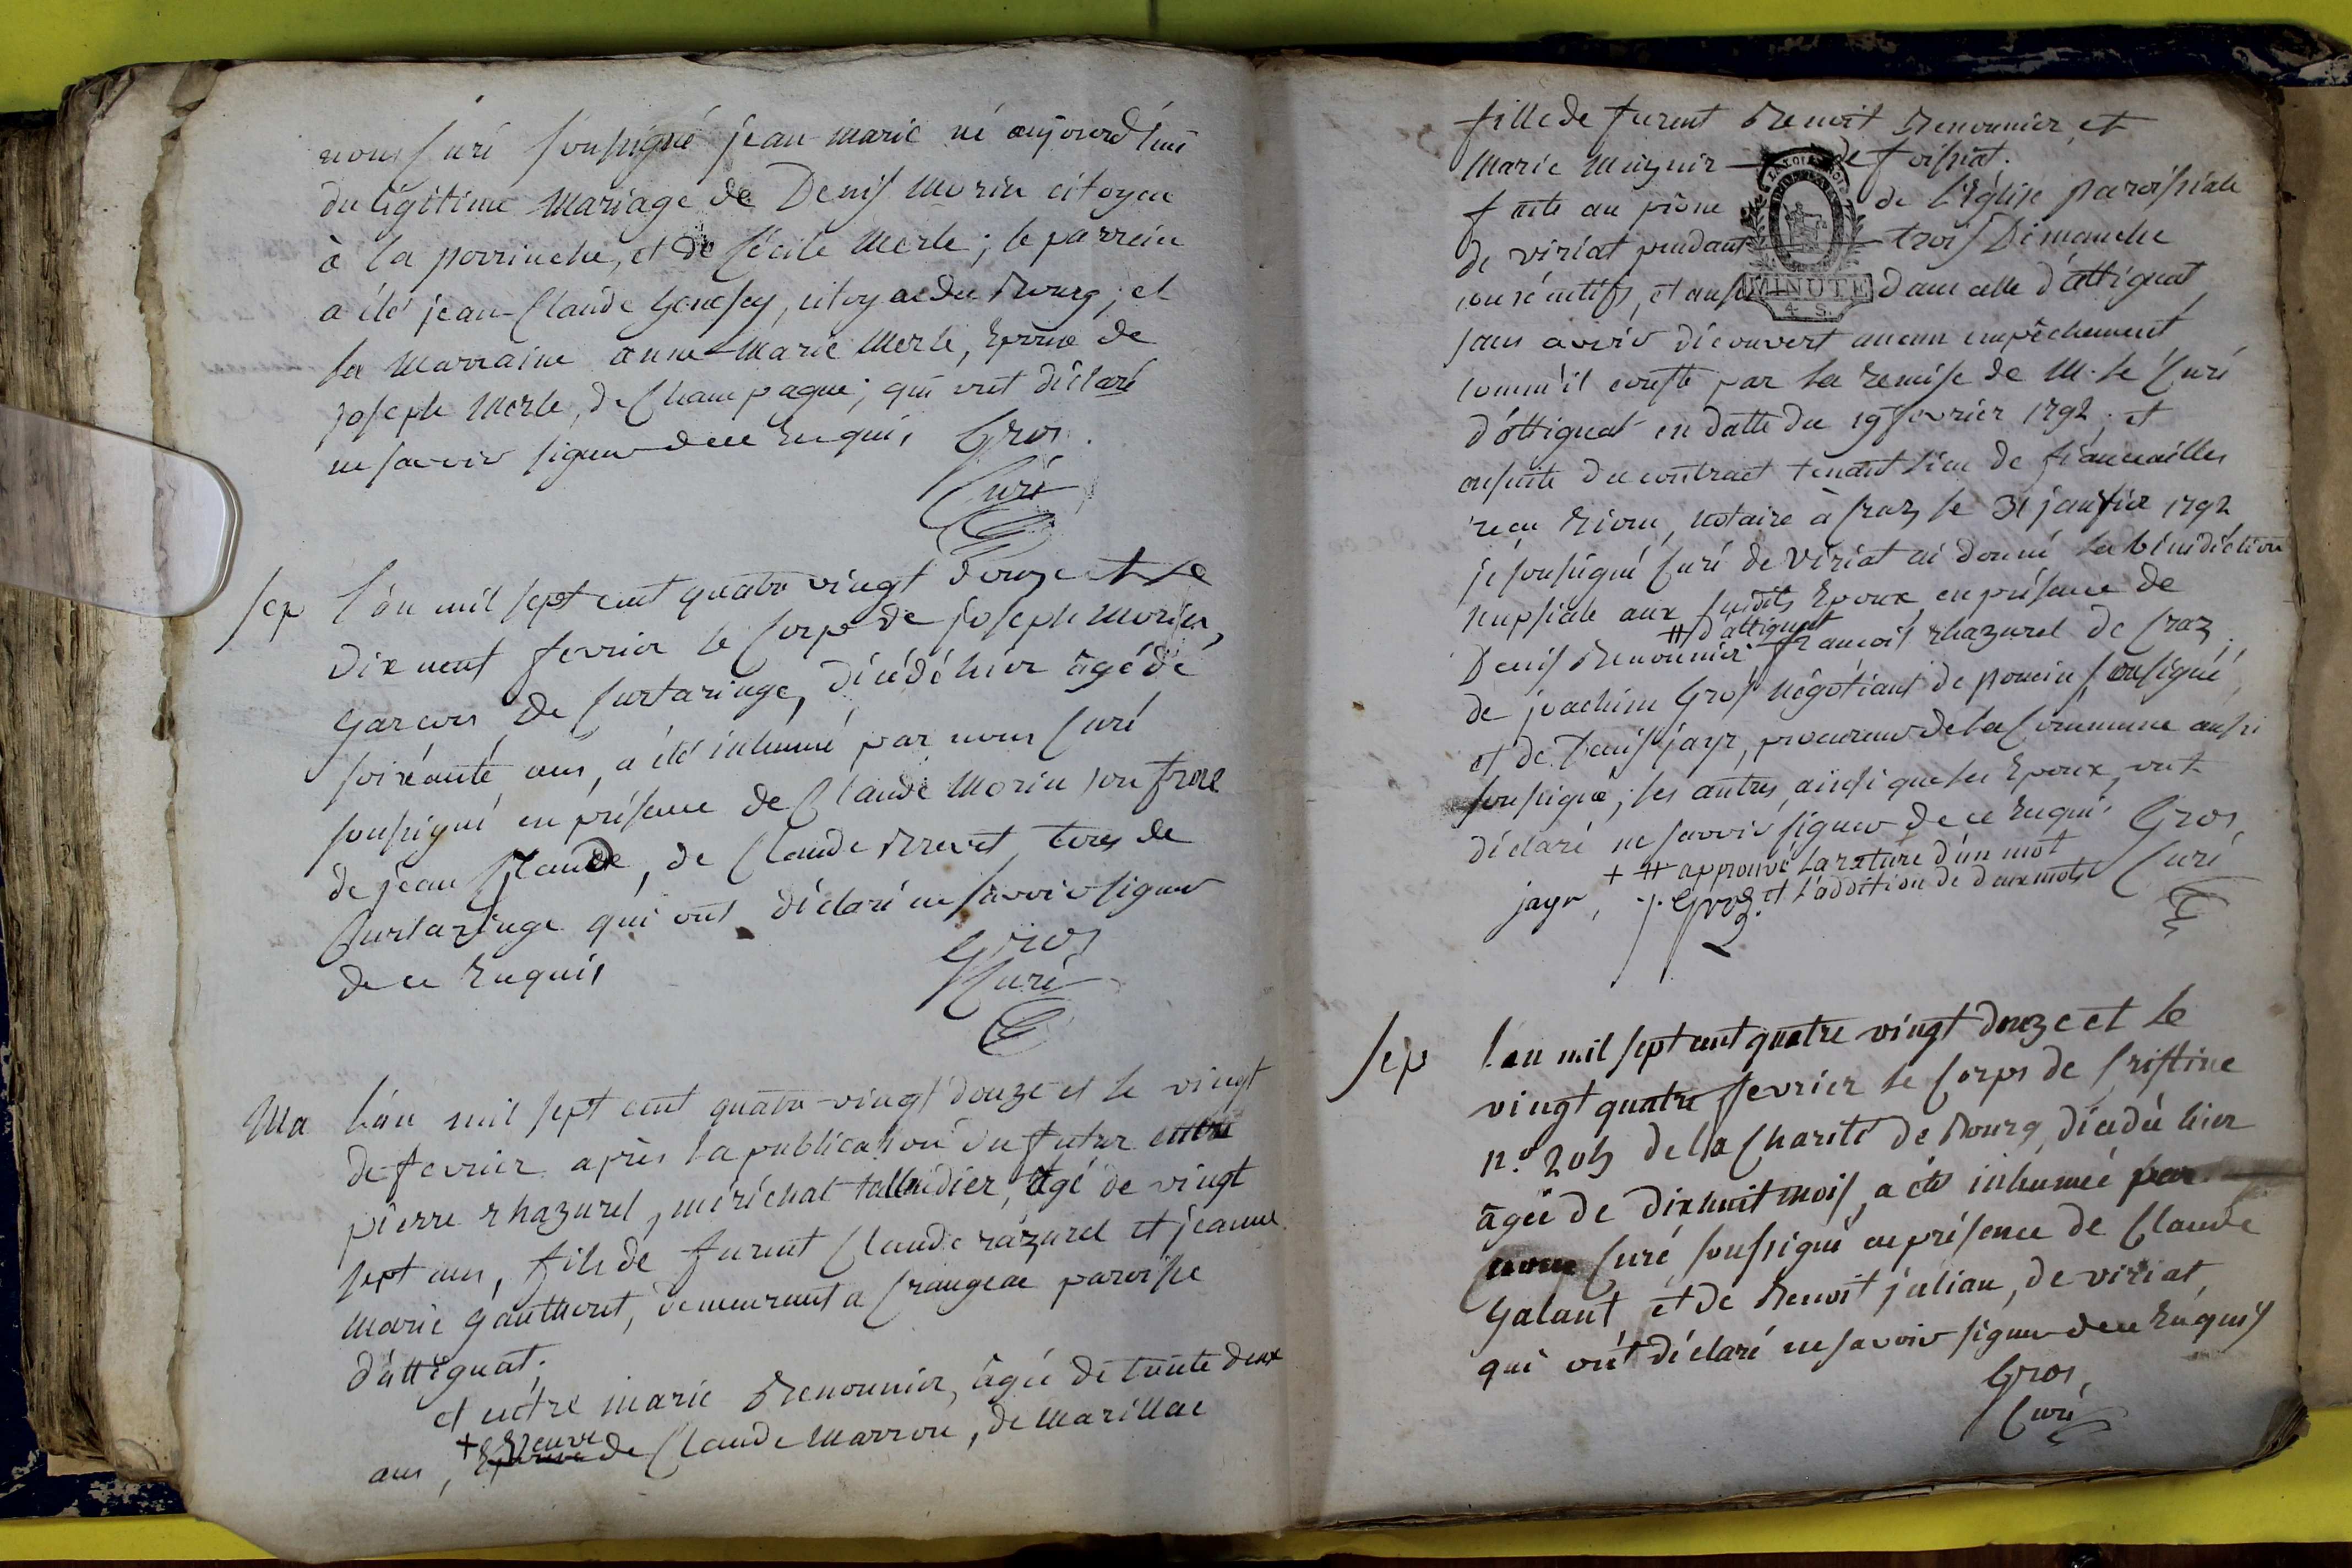 nous Curé soussigné jean-marie né aujourd'huy
du légitime mariage de Denis morin citoyen
à la perrinche, et de Cécile merle; le parrein
a été jean-Claude , citoyen de Bourg, et
la marraine anne-marie merle, Epouse de
joseph merle, de Champagne; qui ont déclaré
ne savoir signer de ce Enquis Gros.
Curé
sep l'an mil sept cent quatre vingt douze et le
dix neuf fevrier le Corps de joseph morin,
garcon de Curtaringe, décédé hier âgé de
soixante ans, a été inhumé par nous Curé
soussigné en présence de Claude morin son frere
de jean Claude, de Claude Brevet tous de
Curtaringe qui ont déclaré ne savoir signer
de ce Enquis
Gros
Curé
Ma l'an mil sept cent quatre-vingt douze et le vingt
de fevrier après la publication du futur entre
pierre rhazurel, méréchal tallandier, âgé de vingt
sept ans, fils de furent Claude razurel et jeanne
marie gautheret, demeurant a Crangeac paroisse
d'attignat;
et entre marie Renounier, âgée de trente deux
ans, + Veuve de Claude Marron, de marillac
fille de furent Benoit Renounier et
marie de foissiat.
faite au prône de l'Eglise paroissiale
de viriat pendant trois Dimanche
consécutifs, et aussi dans celle d'attignat
MINUTE
4 S.
sans avoir découvert aucun empêchement
comm'il conste par la remise de M. le Curé
d'Attignat en datte du 19 fevrier 1792, et
ensuite du contract tenant lieu de fiancailles
recu , notaire à Craz le 31 janvier 1792
je soussigné Curé de Viriat ai donné la bénédiction
nupsiale aux susdits Epoux en présence de
# d'attignat
Denis Renounier francois rhazurel de Craz,
de joachim Gros négotiant de poncin soussigné,
et de Denis jayr, procureur de la Commune aussi
soussigné; les autres, ainsi que les Epoux, ont
déclaré ne savoir signer de ce Enquis Gros
+ # approuvé la rature d'un mot Curé
jayr, j. Gros. et l'addition de deux mots
sep l'an mil sept cent quatre vingt douze et le
vingt quatre fevrier le Corps de Cristine
n.º de la Charité de Bourg, décédée hier
âgée de dix huit mois, a été inhumée par
nous Curé soussigné en présence de Claude
Galant et de Benoit julian, de viriat,
qui ont déclaré ne savoir signer de ce Enquis
Gros,
Curé